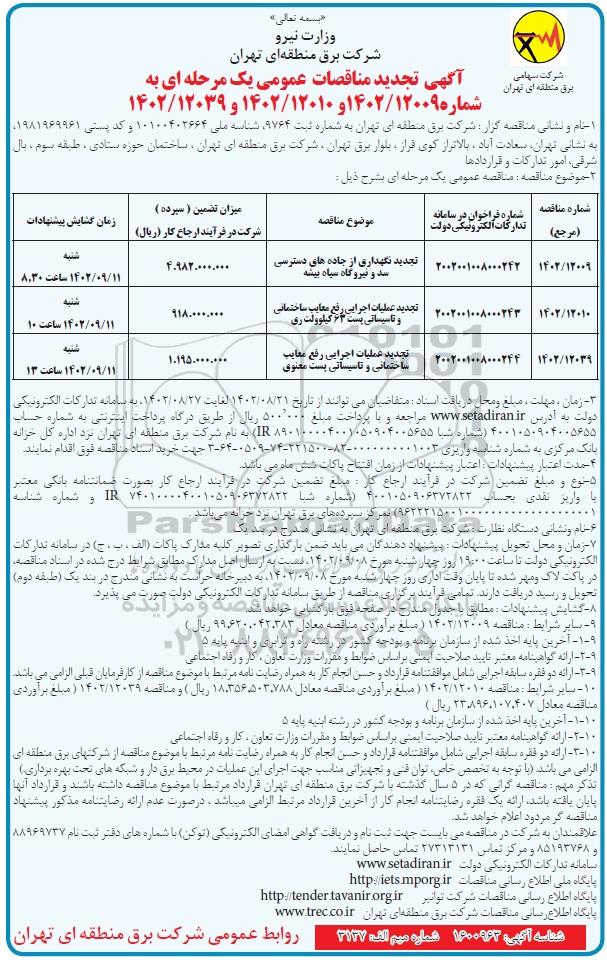 «بسمه تعالی»
وزارت نیرو
شرکت برق منطقه‌ای تهران
شرکت سهامی
برق منطقه ای تهران
آگهی تجدید مناقصات عمومی یک مرحله ای به
شماره ۱۴۰۲/۱۲۰۰۹ و ۱۴۰۲/۱۲۰۱۰ و ۱۴۰۲/۱۲۰۳۹
۱-نام و نشانی مناقصه گزار : شرکت برق منطقه ای تهران به شماره ثبت ۹۷۶۴، شناسه ملی ۱۰۱۰۰۴۰۲۶۶۴ و کد پستی ۱۹۸۱۹۶۹۹۶۱،
به نشانی تهران، سعادت آباد ، بالاتراز کوی فراز ، بلوار برق تهران ، شرکت برق منطقه ای تهران ، ساختمان حوزه ستادی ، طبقه سوم ، بال
شرقی، امور تدارکات و قراردادها
۲-موضوع مناقصه : مناقصه عمومی یک مرحله ای بشرح ذیل :
شماره مناقصه (مرجع) | شماره فراخوان در سامانه تدارکات الکترونیکی دولت | موضوع مناقصه | میزان تضمین ( سپرده ) شرکت در فرآیند ارجاع کار (ریال) | زمان گشایش پیشنهادات
۱۴۰۲/۱۲۰۰۹ | ۲۰۰۲۰۰۱۰۰۸۰۰۰۲۴۲ | تجدید نگهداری از جاده های دسترسی سد و نیروگاه سیاه بیشه | ۴.۹۸۲.۰۰۰.۰۰۰ | شنبه ۱۴۰۲/۰۹/۱۱ ساعت ۸,۳۰
۱۴۰۲/۱۲۰۱۰ | ۲۰۰۲۰۰۱۰۰۸۰۰۰۲۴۳ | تجدید عملیات اجرایی رفع معایب ساختمانی و تاسیساتی پست ۶۳ کیلوولت ری | ۹۱۸.۰۰۰.۰۰۰ | شنبه ۱۴۰۲/۰۹/۱۱ ساعت ۱۰
۱۴۰۲/۱۲۰۳۹ | ۲۰۰۲۰۰۱۰۰۸۰۰۰۲۴۴ | تجدید عملیات اجرایی رفع معایب ساختمانی و تاسیساتی پست معنوی | ۱.۱۹۵.۰۰۰.۰۰۰ | شنبه ۱۴۰۲/۰۹/۱۱ ساعت ۱۳
۳- زمان ، مهلت ، مبلغ ومحل دریافت اسناد : متقاضیان می توانند از تاریخ ۱۴۰۲/۰۸/۲۱ لغایت ۱۴۰۲/۰۸/۲۷، به سامانه تدارکات الکترونیکی
دولت به آدرس www.setadiran.ir مراجعه و با پرداخت مبلغ ۵۰۰٬۰۰۰ ریال از طریق درگاه پرداخت اینترنتی به شماره حساب
۴۰۰۱۱۰۵۰۹۰۴۰۰۵۶۵۵ (شماره شبا IR ۸۹۰۱۰۰۰۰۴۰۰۱۰۵۰۹۰۴۰۰۵۶۵۵) به نام شرکت برق منطقه ای تهران نزد اداره کل خزانه
بانک مرکزی به شماره شناسه واریزی جهت خرید اسناد مناقصه فوق اقدام نمایند.
۴-مدت اعتبار پیشنهادات : اعتبار پیشنهادات از زمان افتتاح پاکات شش ماه می باشد.
۵-نوع و مبلغ تضمین شرکت در فرآیند ارجاع کار : مبلغ تضمین شرکت در فرآیند ارجاع کار بصورت ضمانتنامه بانکی معتبر
یا واریز نقدی بحساب ۴۰۰۱۱۰۵۰۹۰۶۳۷۲۸۲۲ (شماره شبا IR ۷۴۰۱۰۰۰۰۴۰۰۱۰۵۰۹۰۶۳۷۲۸۲۲ و شماره شناسه
تمرکز سپرده‌های برق تهران نزد خزانه می‌باشد .
۶-نام ونشانی دستگاه نظارت : شرکت برق منطقه ای تهران به نشانی مندرج در بند یک
۷-زمان و محل تحویل پیشنهادات : پیشنهاد دهندگان می باید ضمن بارگذاری تصویر کلیه مدارک پاکات (الف ، ب ، ج) در سامانه تدارکات
الکترونیکی دولت تا ساعت ۱۹:۰۰ روز چهار شنبه مورخ ۱۴۰۲/۰۹/۰۸، نسبت به ارسال اصل مدارک مطابق شرایط درج شده در اسناد مناقصه،
در پاکت لاک ومهر شده تا پایان وقت اداری روز چهار شنبه مورخ ۱۴۰۲/۰۹/۰۸، به دبیرخانه حراست به نشانی مندرج در بند یک (طبقه دوم)
تحویل و رسید دریافت دارند. تمامی فرآیند برگزاری مناقصه از طریق سامانه تدارکات الکترونیکی دولت صورت می پذیرد.
۸-گشایش پیشنهادات : مطابق با جدول مندرج در صفحه فوق بازگشایی خواهد شد.
۹- سایر شرایط : مناقصه ۱۴۰۲/۱۲۰۰۹ ( مبلغ برآوردی مناقصه معادل ۹۹,۶۳۰,۰۴۲,۳۸۳ ریال )
۹-۱- آخرین پایه اخذ شده از سازمان برنامه و بودجه کشور در رشته راه و ترابری و ابنیه پایه ۵
۹-۲-ارائه گواهینامه معتبر تایید صلاحیت ایمنی براساس ضوابط و مقررات وزارت تعاون ، کار و رفاه اجتماعی
۹-۳-ارائه دو فقره سابقه اجرایی شامل موافقتنامه قرارداد و حسن انجام کار به همراه رضایت نامه مرتبط با موضوع مناقصه از کارفرمایان قبلی الزامی می باشد.
۱۰-سایر شرایط : مناقصه ۱۴۰۲/۱۲۰۱۰ ( مبلغ برآوردی مناقصه معادل ۱۸,۳۵۶,۵۰۳,۷۸۸ ریال ) و مناقصه ۱۴۰۲/۱۲۰۳۹ ( مبلغ برآوردی
مناقصه معادل ۲۳,۸۹۶,۱۰۷,۴۰۷ ریال )
۱۰-۱-آخرین پایه اخذ شده از سازمان برنامه و بودجه کشور در رشته ابنیه پایه ۵
۱۰-۲-ارائه گواهینامه معتبر تایید صلاحیت ایمنی براساس ضوابط و مقررات وزارت تعاون ، کار و رفاه اجتماعی
۱۰-۳-ارائه دو فقره سابقه اجرایی شامل موافقتنامه قرارداد و حسن انجام کار به همراه رضایت نامه مرتبط با موضوع مناقصه از شرکتهای برق منطقه ای
الزامی می باشد. (با توجه به تخصص خاص، توان فنی و تجهیزاتی مناسب جهت اجرای این عملیات در محیط برق دار و شبکه های تحت بهره برداری.)
تذکر مهم : مناقصه گرانی که در ۵ سال گذشته با شرکت برق منطقه ای تهران قرارداد مرتبط با موضوع مناقصه داشته باشند و قرارداد آنها
پایان یافته باشد، ارائه یک فقره رضایتنامه انجام کار از آخرین قرارداد مرتبط الزامی میباشد ، درصورت عدم ارائه رضایتنامه مذکور پیشنهاد
مناقصه گر مردود اعلام خواهد شد.
علاقمندان به شرکت در مناقصه می بایست جهت ثبت نام و دریافت گواهی امضای الکترونیکی (توکن) با شماره های دفتر ثبت نام ۸۸۹۶۹۷۳۷
و ۸۵۱۹۳۷۶۸ و مرکز تماس ۲۷۳۱۳۱۳۱ تماس حاصل نمایند.
سامانه تدارکات الکترونیکی دولت www.setadiran.ir
پایگاه ملی اطلاع رسانی مناقصات http://iets.mporg.ir
پایگاه اطلاع رسانی مناقصات شرکت توانیر http://tender.tavanir.org.ir
پایگاه اطلاع رسانی مناقصات شرکت برق منطقه‌ای تهران www.trec.co.ir
شناسه آگهی: ۱۶۰۰۹۶۳ شماره میم الف: ۳۱۳۷
روابط عمومی شرکت برق منطقه ای تهران